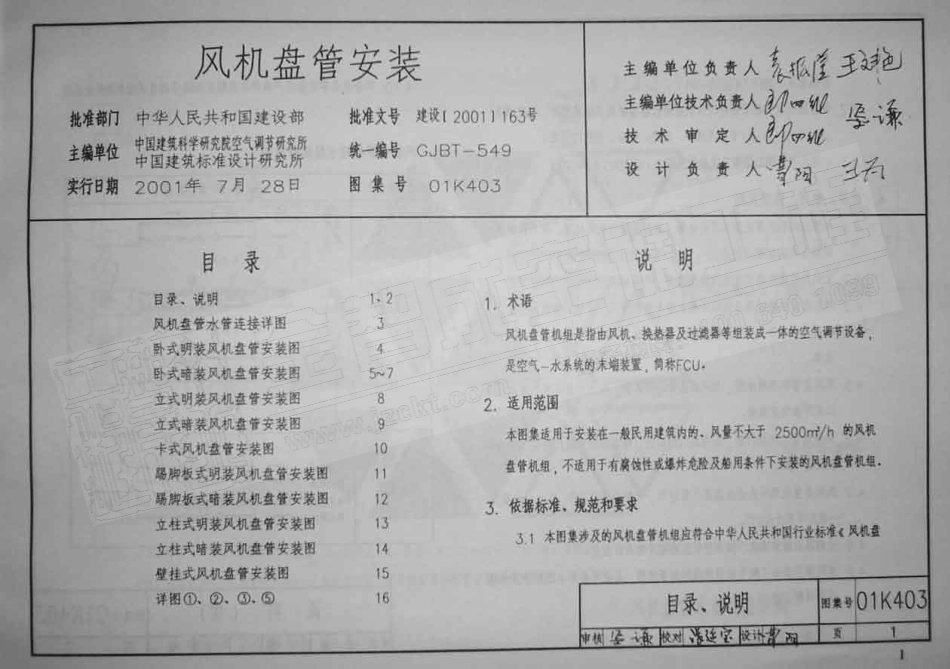 风机盘管安装
批准部门 中华人民共和国建设部
主编单位 中国建筑科学研究院空气调节研究所
中国建筑标准设计研究所
实行日期 2001年 7月 28日
批准文号 建设[2001]163号
统一编号 GJBT-549
图集号 01K403
主编单位负责人
主编单位技术负责人
技术审定人
设计负责人
目 录
目录、说明 1、2
风机盘管水管连接详图 3
卧式明装风机盘管安装图 4
卧式暗装风机盘管安装图 5~7
立式明装风机盘管安装图 8
立式暗装风机盘管安装图 9
卡式风机盘管安装图 10
踢脚板式明装风机盘管安装图 11
踢脚板式暗装风机盘管安装图 12
立柱式明装风机盘管安装图 13
立柱式暗装风机盘管安装图 14
壁挂式风机盘管安装图 15
详图①、②、③、⑤ 16
说 明
1. 术语
风机盘管机组是指由风机、换热器及过滤器等组装成一体的空气调节设备,
是空气-水系统的末端装置,简称FCU。
2. 适用范围
本图集适用于安装在一般民用建筑内的、风量不大于 2500m³/h 的风机
盘管机组,不适用于有腐蚀性或爆炸危险及船用条件下安装的风机盘管机组。
3. 依据标准、规范和要求
3.1 本图集涉及的风机盘管机组应符合中华人民共和国行业标准《风机盘
目录、说明 图集号 01K403
审核 校对 设计 页 1
1
www.jzckt.com